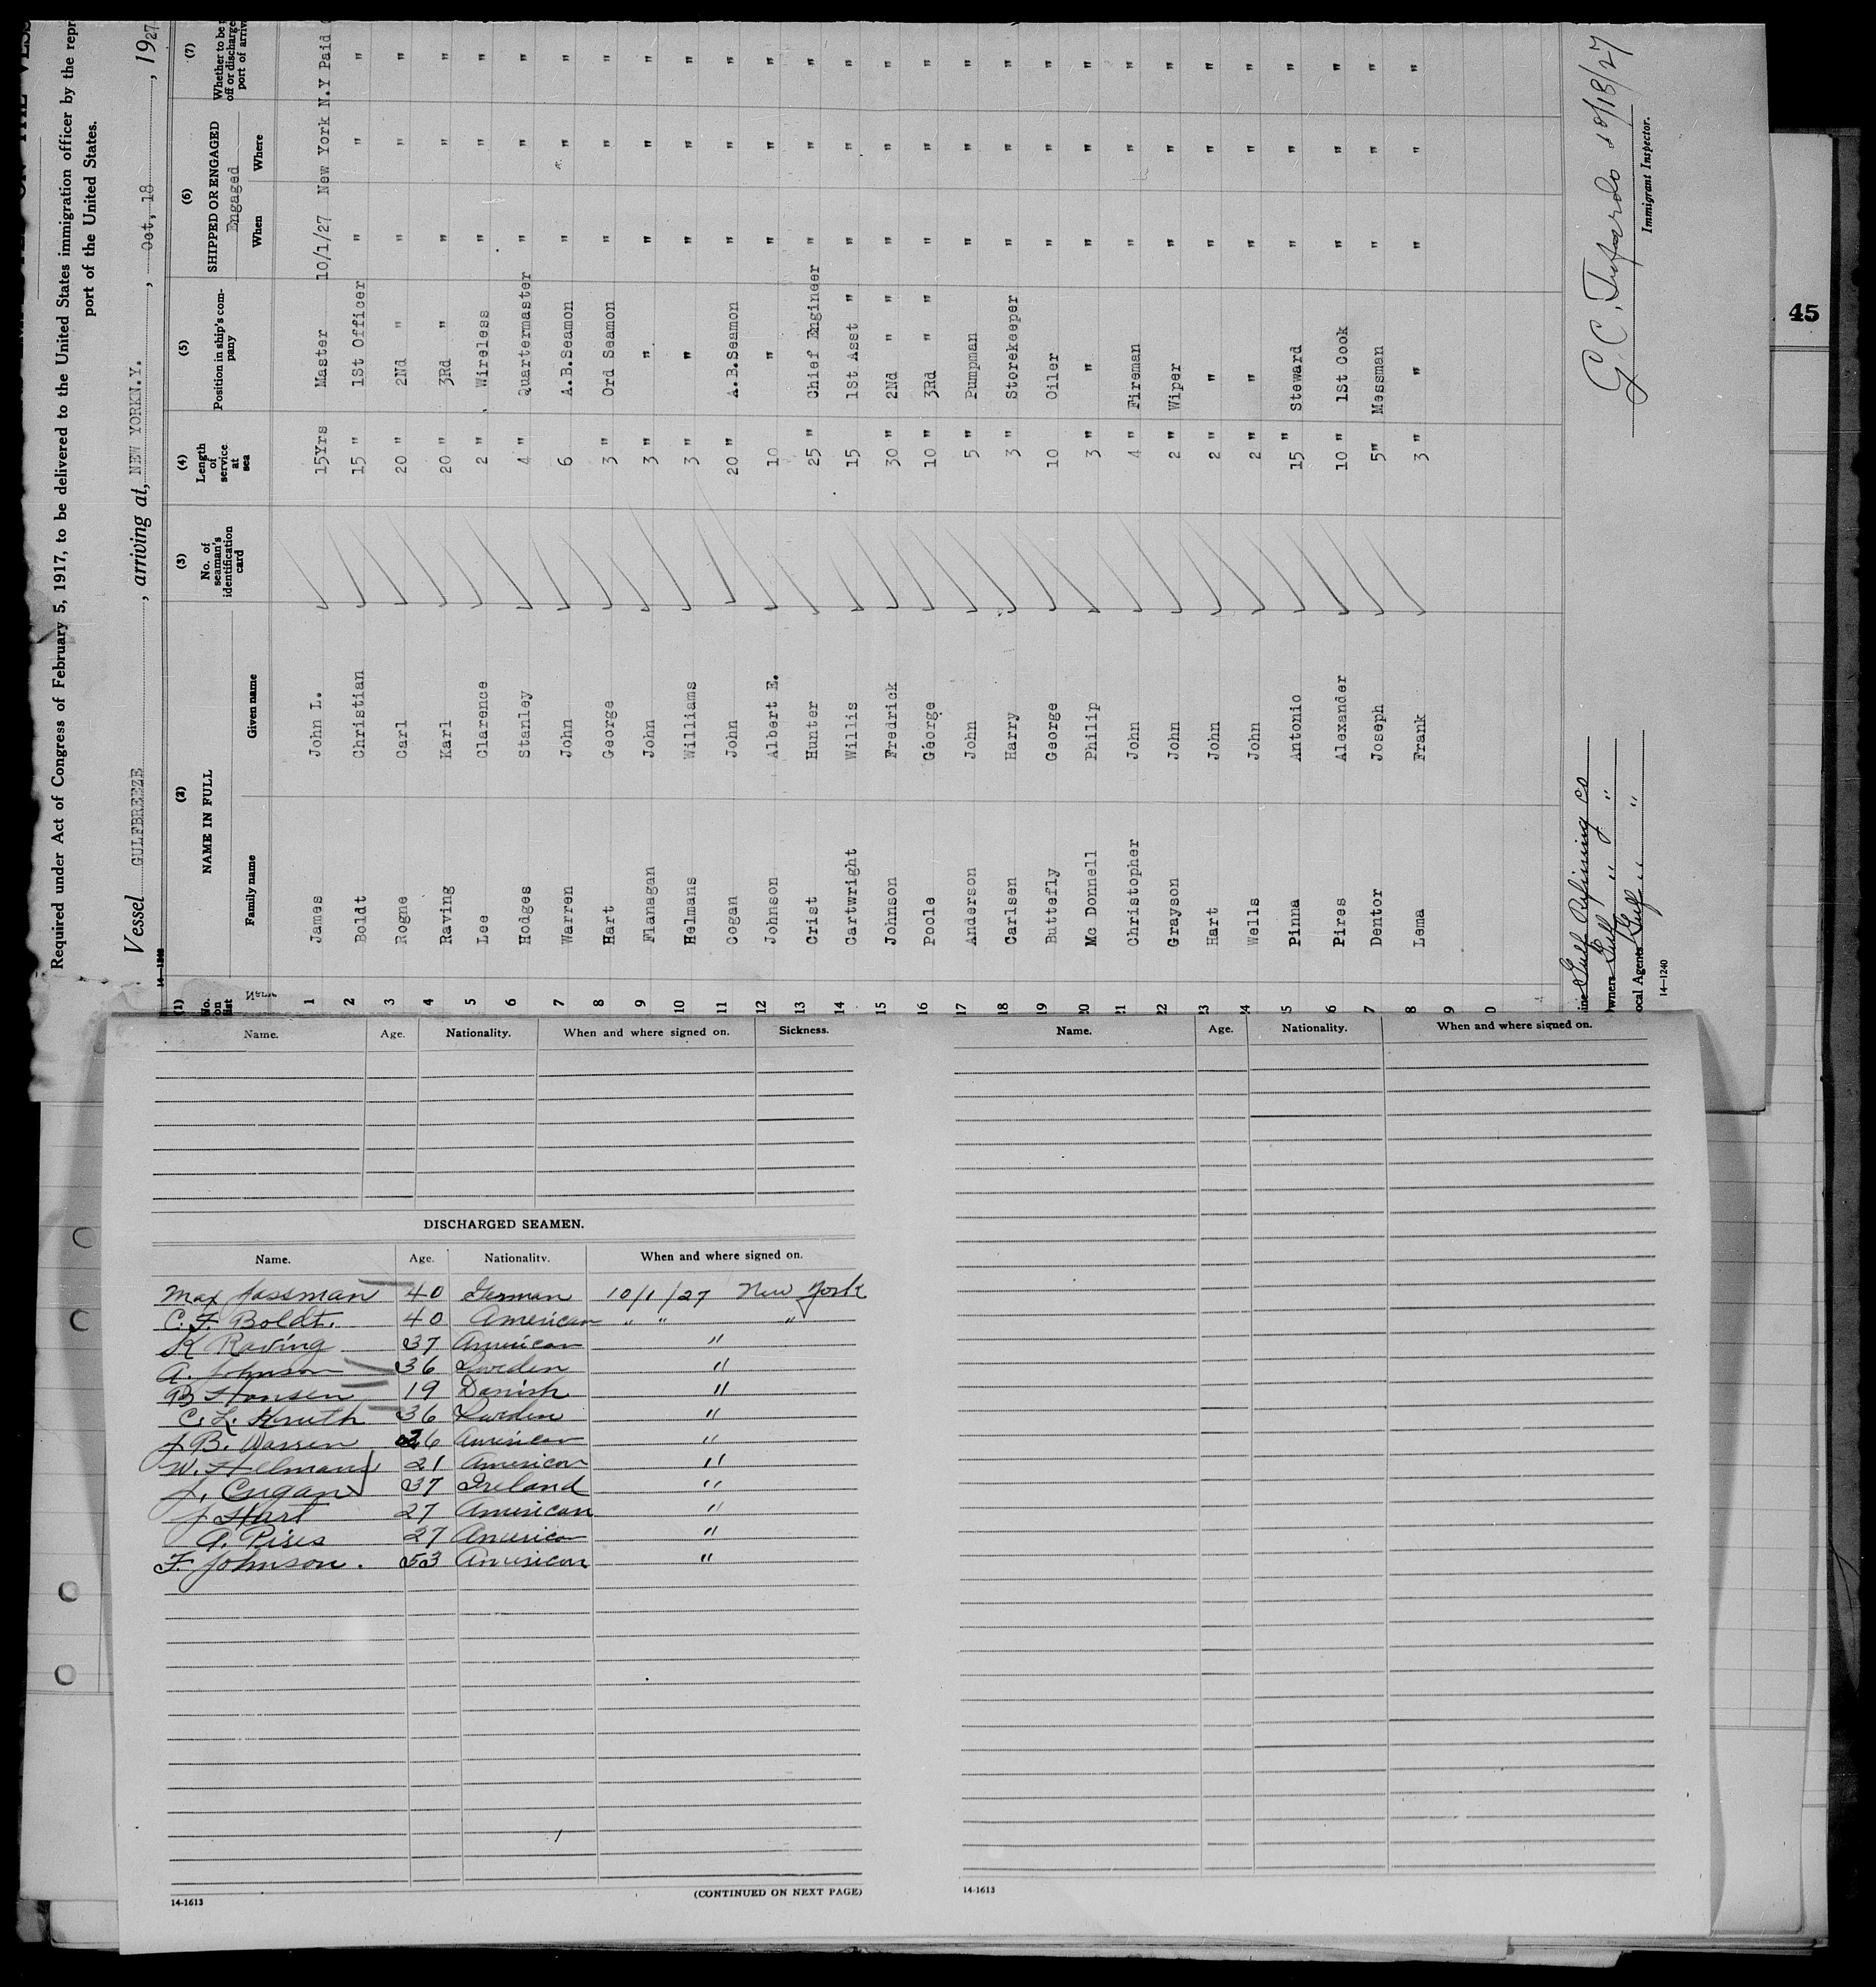 Required under Act of Congress of February 5, 1917, to be delivered to the United States immigration officer by the repr
port of the United States.
Vessel GULFBREEZE , arriving at, NEW YORK N.Y. , Oct, 18 , 1927
14—1240
(1) (2) (3) (4) (5) (6) (7)
No. on list NAME IN FULL No. of seaman's identification card Length of service at sea Position in ship's company SHIPPED OR ENGAGED Whether to be off or discharge port of arriv
Engaged
Family name Given name When Where
1 James John L. 15Yrs Master 10/1/27 New York N.Y Paid
2 Boldt Christian 15 " 1St Officer " " "
3 Rogne Carl 20 " 2Nd " " " "
4 Raving Karl 20 " 3Rd " " " "
5 Lee Clarence 2 " Wireless " " "
6 Hodges Stanley 4 " Quartermaster " " "
7 Warren John 6 A.B.Seamon " " "
8 Hart George 3 " Ord Seamon " " "
9 Flanagan John 3 " " " " "
10 Helmans Williams 3 " " " " "
11 Cogan John 20 " A.B.Seamon " " "
12 Johnson Albert E. 10 " " " "
13 Crist Hunter 25 " Chief Engineer " " "
14 Cartwright Willis 15 1St Asst " " " "
15 Johnson Fredrick 30 " 2Nd " " " " "
16 Poole George 10 " 3Rd " " " " "
17 Anderson John 5 " Pumpman " " "
18 Carlsen Harry 3 " Storekeeper " " "
19 Buttefly George 10 Oiler " " "
20 Mc Donnell Philip 3 " " " " "
21 Christopher John 4 " Fireman " " "
22 Grayson John 2 " Wiper " " "
3 Hart John 2 " " " " "
4 Wells John 2 " " " " "
5 Pinna Antonio 15 " Steward " " "
6 Pires Alexander 10 " 1St Cook " " "
7 Dentor Joseph 5" Messman " " "
8 Lema Frank 3 " " " " "
9
0
ine Gulf Refining Co
wners Gulf " "
ocal Agents Gulf " "
14—1240
G. C. 10/18/27
Immigrant Inspector.
45
Name. Age. Nationality. When and where signed on. Sickness.
Name. Age. Nationality. When and where signed on.
DISCHARGED SEAMEN.
Name. Age. Nationality. When and where signed on.
Max Jassman 40 German 10/1/27 New York
C. F. Boldt. 40 American " " "
K Raving 37 American "
A. Johnson 36 Sweden "
B Hansen 19 Danish "
C. L. Knuth 36 Sweden "
J B. Warren 26 American "
W. Helmans 21 American "
J. Cugan 37 Ireland "
J Hart 27 American "
A. Pires 27 America "
F. Johnson. 53 American "
14-1613
(CONTINUED ON NEXT PAGE)
14-1613